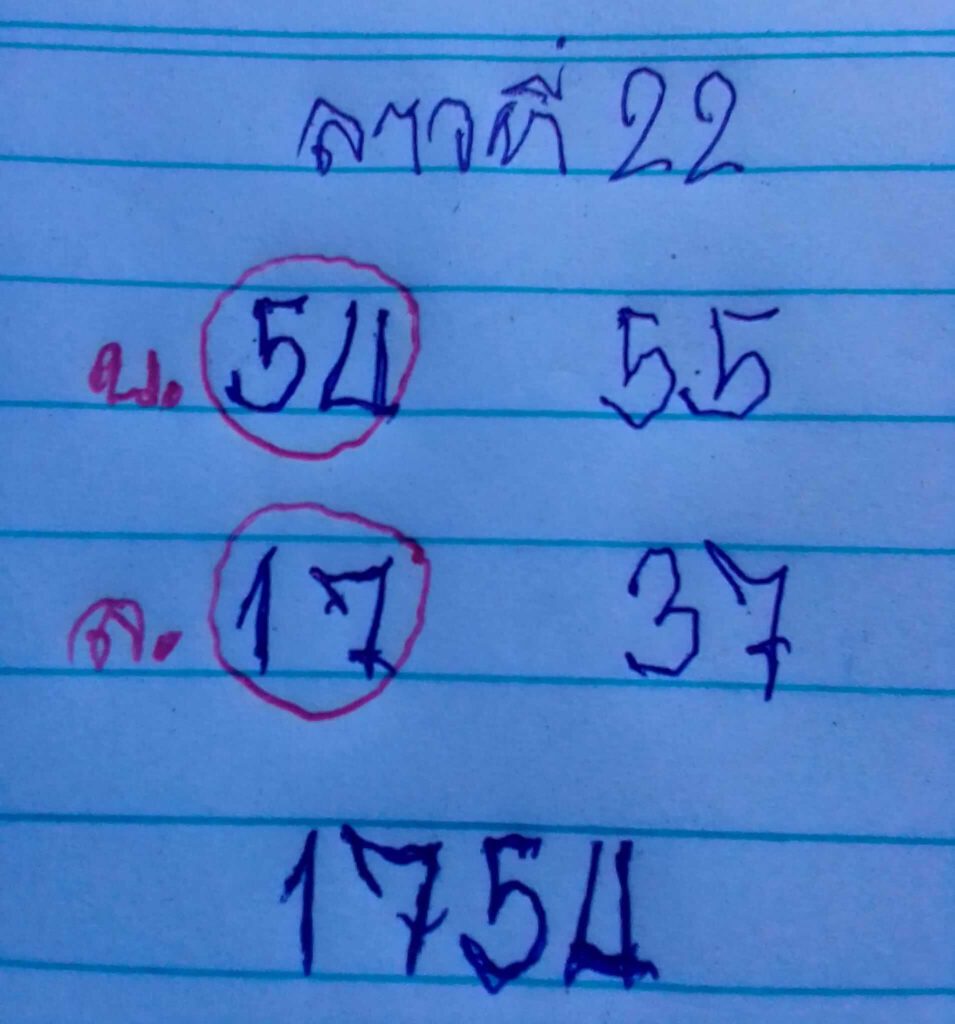 ลาวที่ 22
บ. 54 55
ล. 17 37
1754